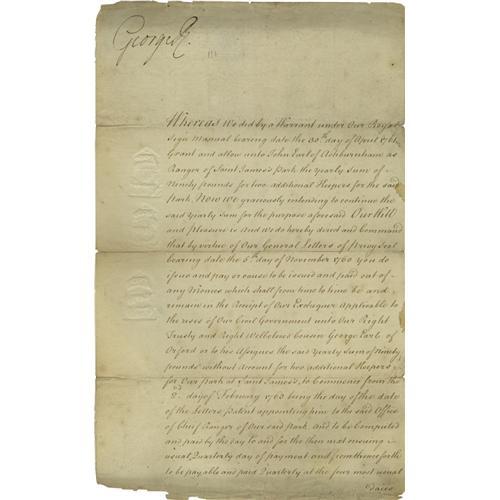 George R
Whereas We did by a Warrant under Our Royal
Sign Manual bearing date the 30th day of April 1761
Grant and allow unto John Earl of Ashburnham as
Ranger of Saint James's Park the yearly Sum of
Ninety pounds for two additional Keepers for the said
Park, Now We graciously intending to continue the
said Yearly Sum for the purpose aforesaid Our Will
and pleasure is And We do hereby direct and Command
that by virtue of Our General Letters of Privy Seal
bearing date the 5th day of November 1760 you do
issue and pay or cause to be issued and paid out of
any Monies which shall from time to time be and
remain in the Receipt of Our Exchequer Applicable to
the uses of Our Civil Government unto Our Right
Trusty and Right Welbeloved Cousin George Earl of
Orford or to his Assignes the said Yearly Sum of Ninety
pounds without Account for two additional Keepers
for Our Park at Saint James's, to Commence from the
8th day of February 1763 being the day of the date
of the Letters Patent appointing him to the said Office
of Chief Ranger of Our said Park And to be computed
and paid by the day to and for the then next ensuing
usual Quarterly day of payment and from thenceforth
to be payable and paid Quarterly at the four most usual
Daies